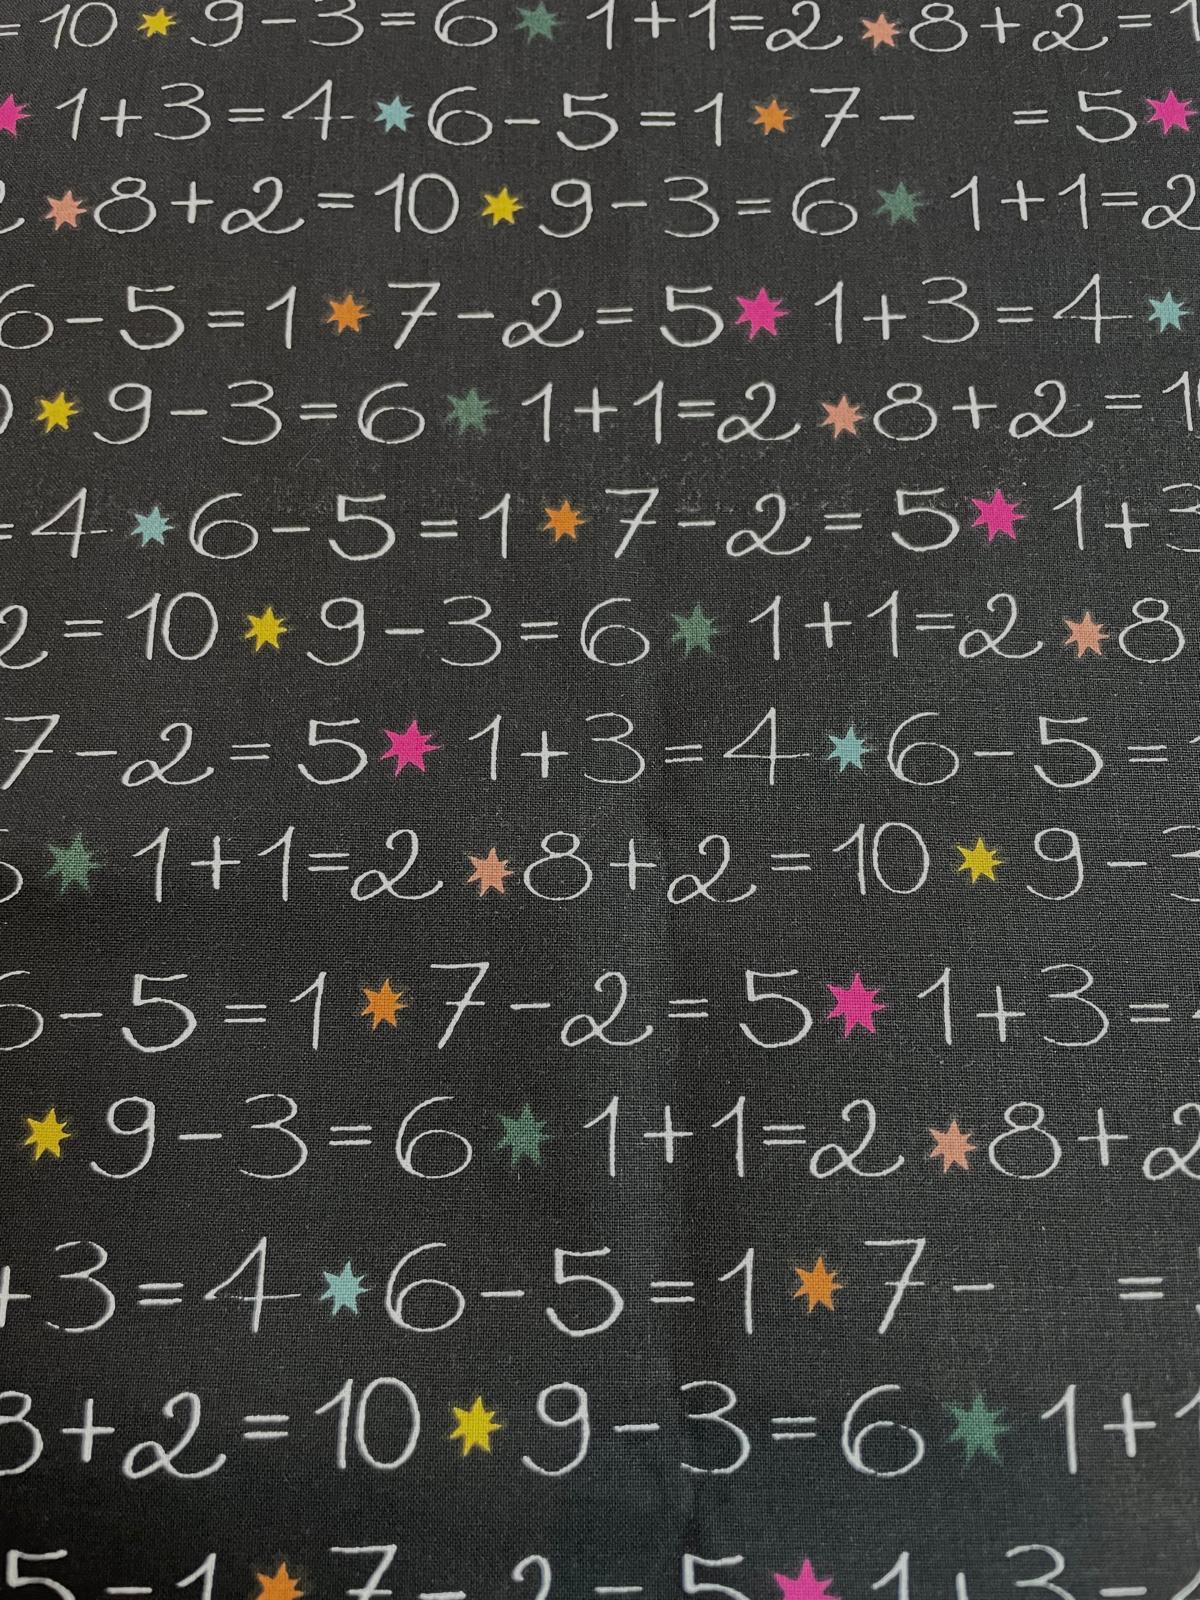 = 10 9 - 3 = 6 1 + 1 = 2 8 + 2 = 1
1 + 3 = 4 6 - 5 = 1 7 - = 5
2 8 + 2 = 10 9 - 3 = 6 1 + 1 = 2
6 - 5 = 1 7 - 2 = 5 1 + 3 = 4
9 - 3 = 6 1 + 1 = 2 8 + 2 = 1
= 4 6 - 5 = 1 7 - 2 = 5 1 + 3
2 = 10 9 - 3 = 6 1 + 1 = 2 8
7 - 2 = 5 1 + 3 = 4 6 - 5 =
1 + 1 = 2 8 + 2 = 10 9 - 3
6 - 5 = 1 7 - 2 = 5 1 + 3 =
9 - 3 = 6 1 + 1 = 2 8 + 2
+ 3 = 4 6 - 5 = 1 7 - =
8 + 2 = 10 9 - 3 = 6 1 + 1
5 = 1 7 - 2 = 5 1 + 3 =